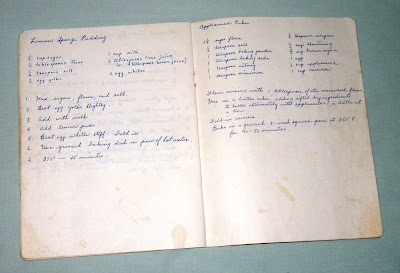 Lemon Sponge Pudding
3/4 cup sugar
1 cup milk
2 tablespoons flour
2 tablespoons lime juice
(or 4 tablespoons lemon juice)
teaspoon salt
2 egg whites
2 egg yolks
1. Mix sugar, flour, and salt.
2. Beat egg yolks slightly
3. Add with milk
4. Add lemon juice
5. Beat egg whites stiff. Fold in
6. Use greased baking dish in pan of hot water.
7. 350° — 45 minutes.
Applesauce Cake
cups flour
teaspoon cloves
teaspoon salt
cup shortening
teaspoon baking powder
cup brown sugar
teaspoon baking soda
egg
teaspoon nutmeg
cup applesauce
teaspoon cinnamon
cup raisins
Flour raisins with 1 tablespoon of the measured flour
Mix as a butter cake, adding sifted dry ingredients
to batter alternately with applesauce, a little at
a time.
Fold in raisins
Bake in a greased 8-inch square pan at 350°F
for 40-50 minutes.